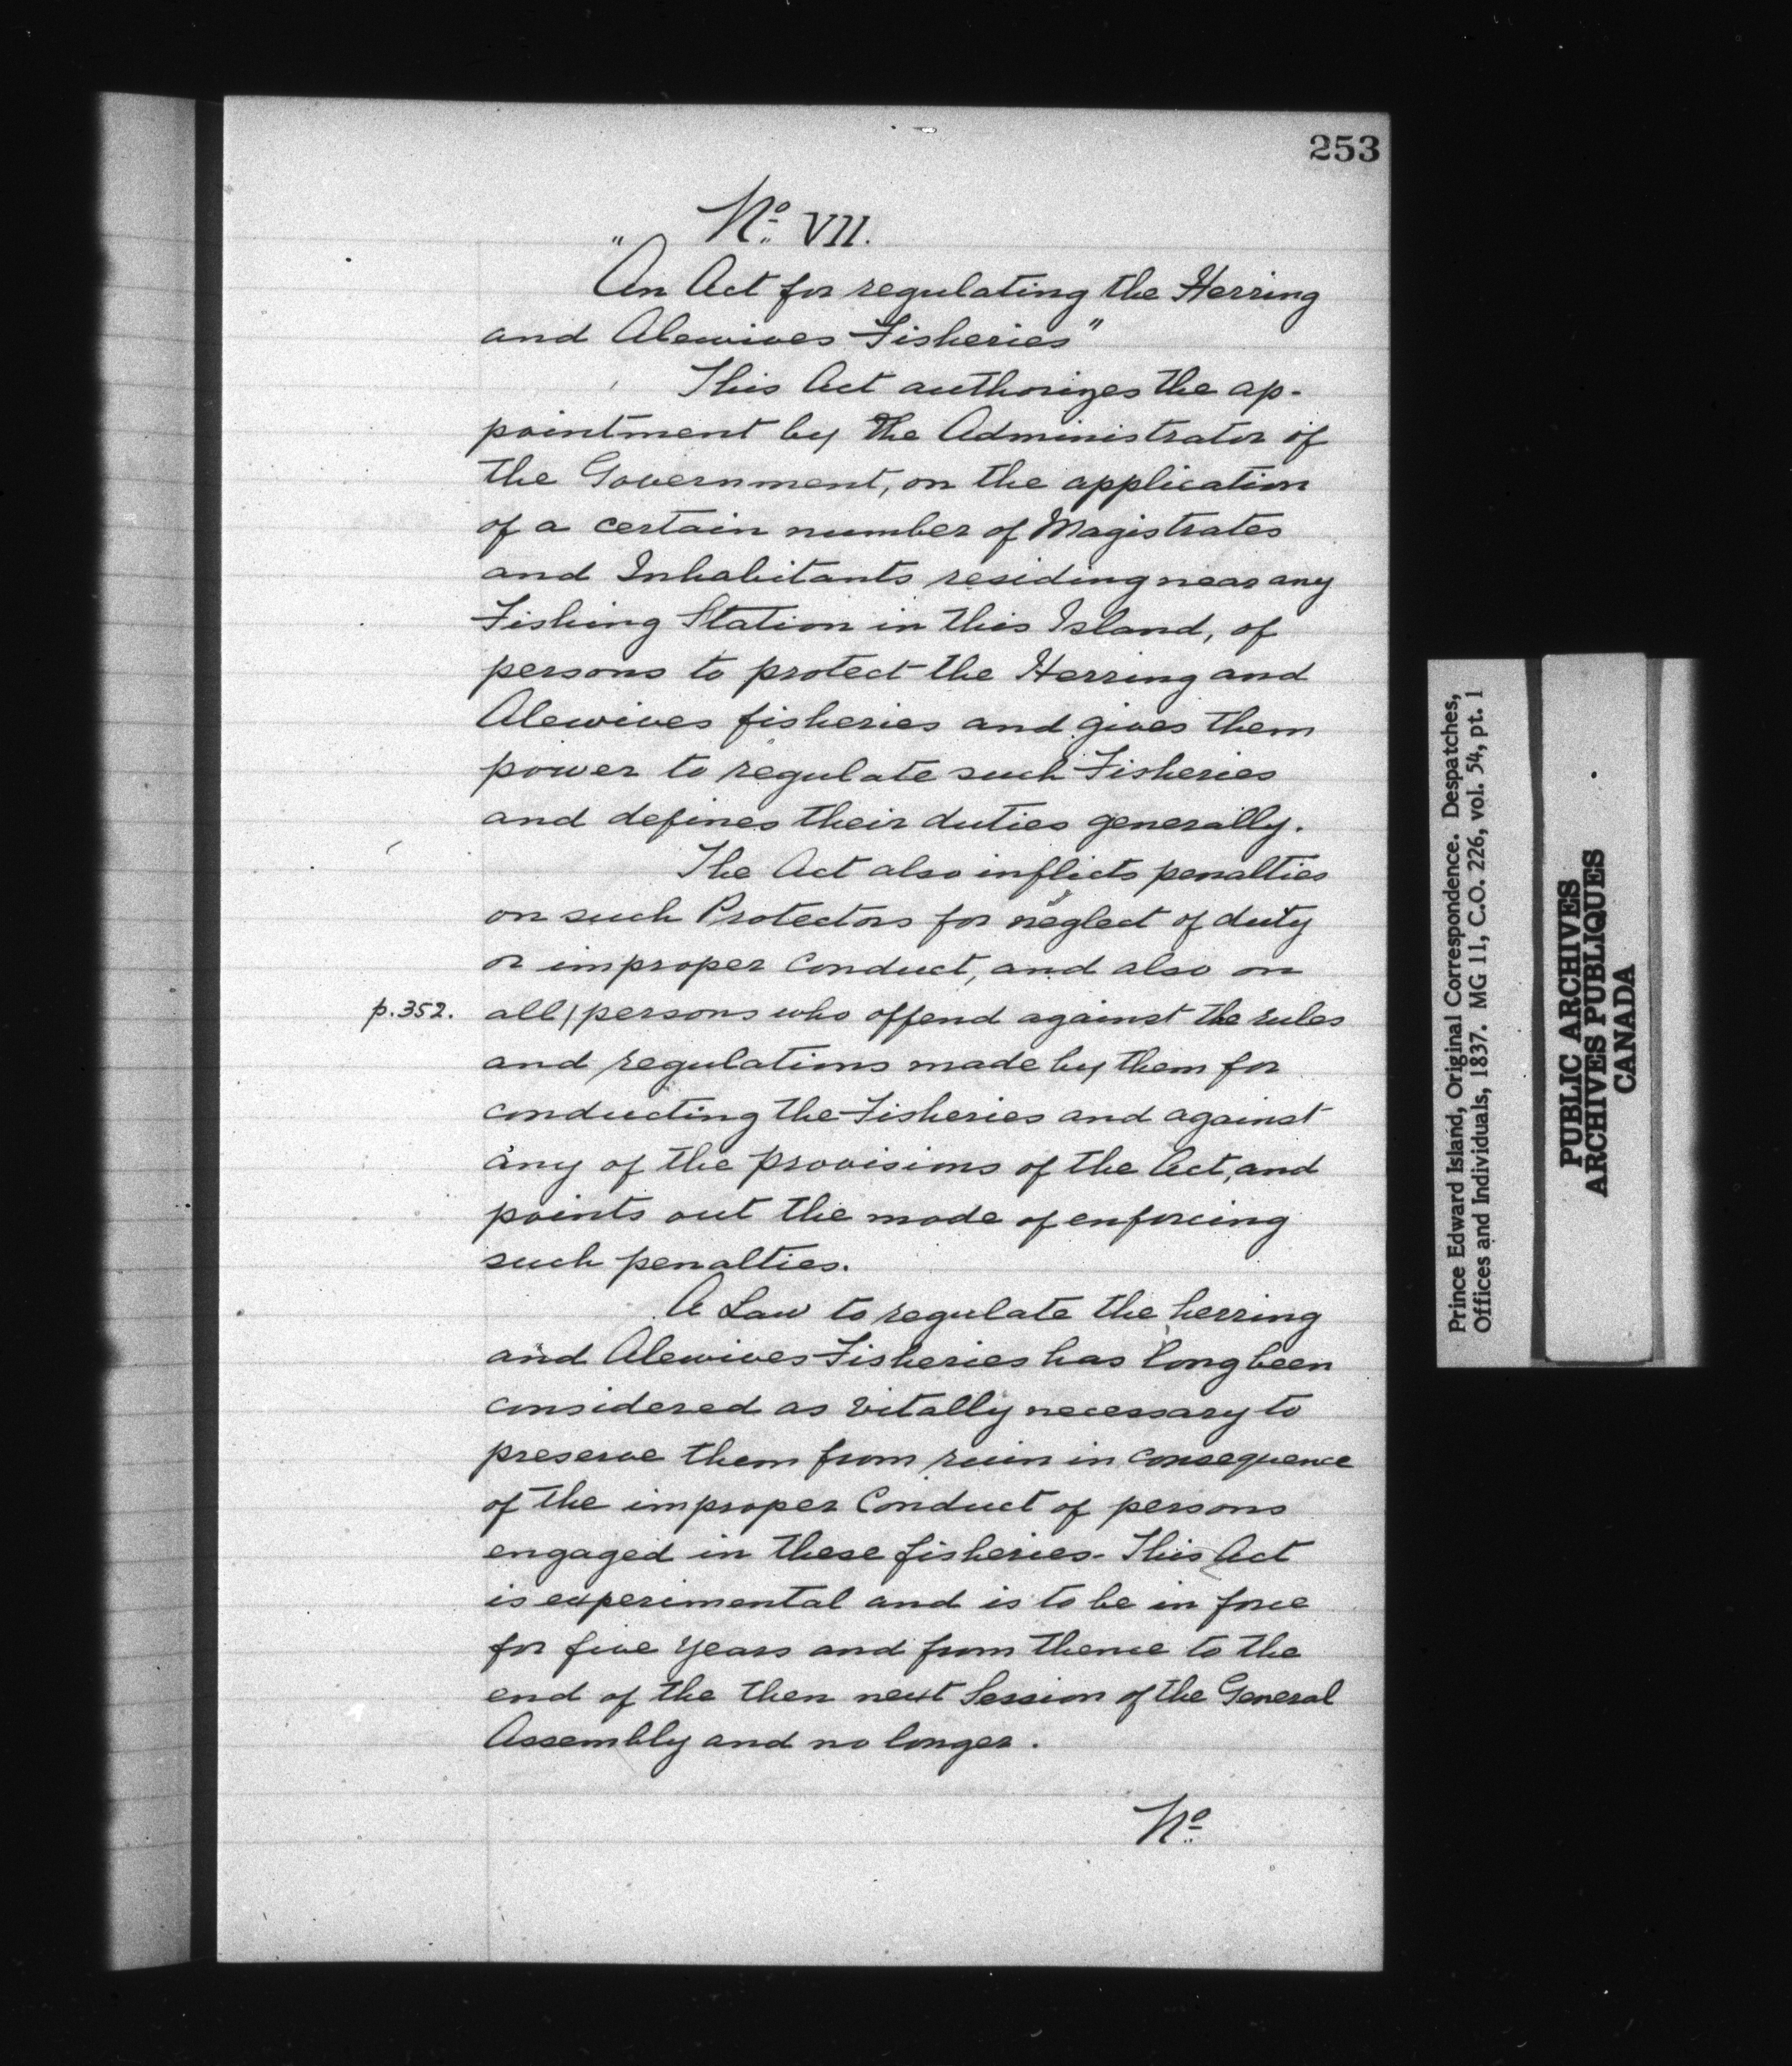 253
No. VII.
"An Act for regulating the Herring
and Alewives Fisheries"
This Act authorizes the ap-
pointment by the Administrator of
the Government, on the application
of a certain number of Magistrates
and Inhabitants residing near any
Fishing Station in this Island, of
persons to protect the Herring and
Alewives fisheries and gives them
power to regulate such Fisheries
and defines their duties generally.
The Act also inflicts penalties
on such Protectors for neglect of duty
or improper conduct, and also on
p.352. all/persons who offend against the rules
and regulations made by them for
conducting the Fisheries and against
any of the provisions of the Act, and
points out the mode of enforcing
such penalties.
A Law to regulate the herring
and Alewives Fisheries has long been
considered as vitally necessary to
preserve them from ruin in consequence
of the improper Conduct of persons
engaged in these fisheries. This Act
is experimental and is to be in force
for five years and from thence to the
end of the then next Session of the General
Assembly and no longer.
No.
Prince Edward Island, Original Correspondence. Despatches,
Offices and Individuals, 1837. MG 11, C.O. 226, vol. 54, pt. 1
PUBLIC ARCHIVES
ARCHIVES PUBLIQUES
CANADA